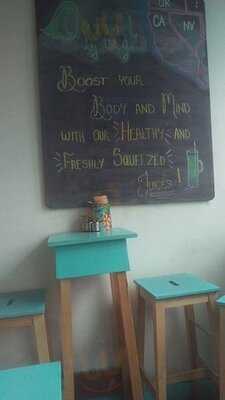 OR
CA NV
BOOST YOUR
BODY AND MIND
WITH OUR HEALTHY AND
FRESHLY SQUEEZED
JUICES!